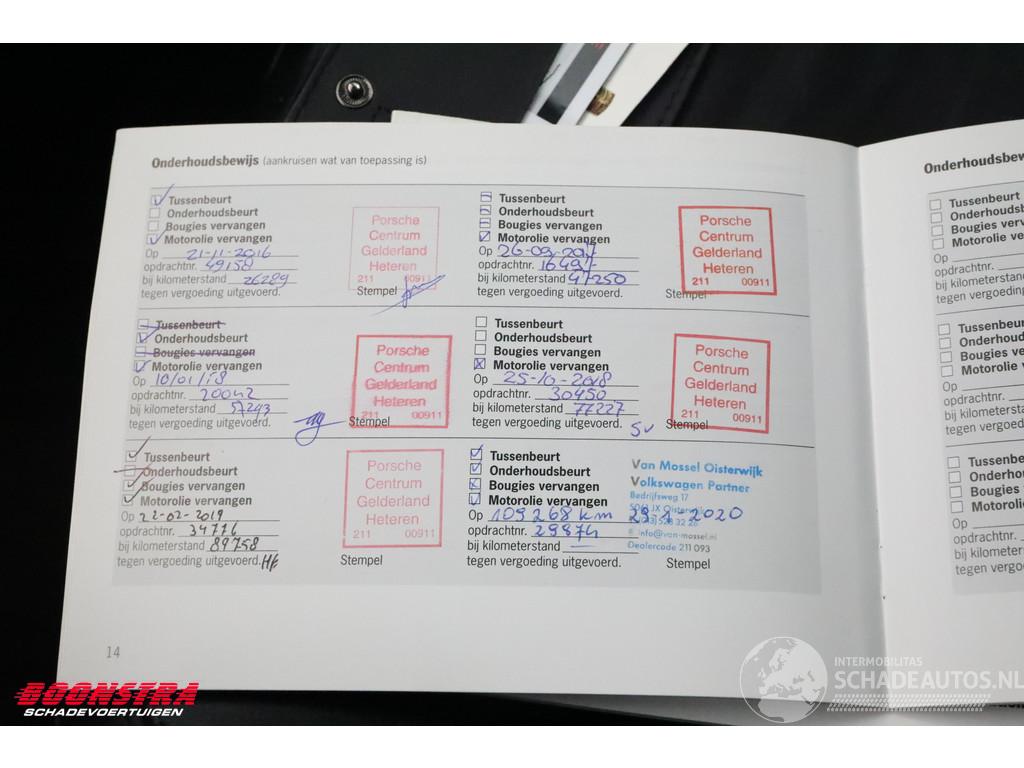 Onderhoudsbewijs (aankruisen wat van toepassing is)
Tussenbeurt
Onderhoudsbeurt
Bougies vervangen
Motorolie vervangen
Op 21-11-2016
opdrachtnr. 49158
bij kilometerstand 26289
tegen vergoeding uitgevoerd.
Porsche
Centrum
Gelderland
Heteren
211 00911
Stempel
Tussenbeurt
Onderhoudsbeurt
Bougies vervangen
Motorolie vervangen
Op 26-09-2017
opdrachtnr. 16491
bij kilometerstand 47250
tegen vergoeding uitgevoerd.
Porsche
Centrum
Gelderland
Heteren
211 00911
Stempel
Tussenbeurt
Onderhoudsbeurt
Bougies vervangen
Motorolie vervangen
Op 10/01/18
opdrachtnr. 20042
bij kilometerstand 57243
tegen vergoeding uitgevoerd.
Porsche
Centrum
Gelderland
Heteren
211 00911
Stempel
Tussenbeurt
Onderhoudsbeurt
Bougies vervangen
Motorolie vervangen
Op 25-10-2018
opdrachtnr. 30450
bij kilometerstand 77227
tegen vergoeding uitgevoerd.
SV
Porsche
Centrum
Gelderland
Heteren
211 00911
Stempel
Tussenbeurt
Onderhoudsbeurt
Bougies vervangen
Motorolie vervangen
Op 22-02-2019
opdrachtnr. 34776
bij kilometerstand 89758
tegen vergoeding uitgevoerd.
Porsche
Centrum
Gelderland
Heteren
211 00911
Stempel
Tussenbeurt
Onderhoudsbeurt
Bougies vervangen
Motorolie vervangen
Op 109268 km 29-1-2020
opdrachtnr. 29874
bij kilometerstand —
tegen vergoeding uitgevoerd.
Van Mossel Oisterwijk
Volkswagen Partner
Bedrijfsweg 17
5061 JX Oisterwijk
info@van-mossel.nl
Dealercode 211 093
Stempel
14
Onderhoudsbew
Tussenbeurt
Onderhoudsbe
Bougies verva
Motorolie verv
Op
opdrachtnr.
bij kilometerst
tegen vergoed
Tussenbeurt
Onderhoudsb
Bougies verva
Motorolie ver
Op
opdrachtnr.
bij kilometers
tegen vergoe
Tussenbe
Onderhou
Bougies
Motorolie
Op
opdrachtn
bij kilomet
tegen verg
BOONSTRA
SCHADEVOERTUIGEN
INTERMOBILITAS
SCHADEAUTOS.NL